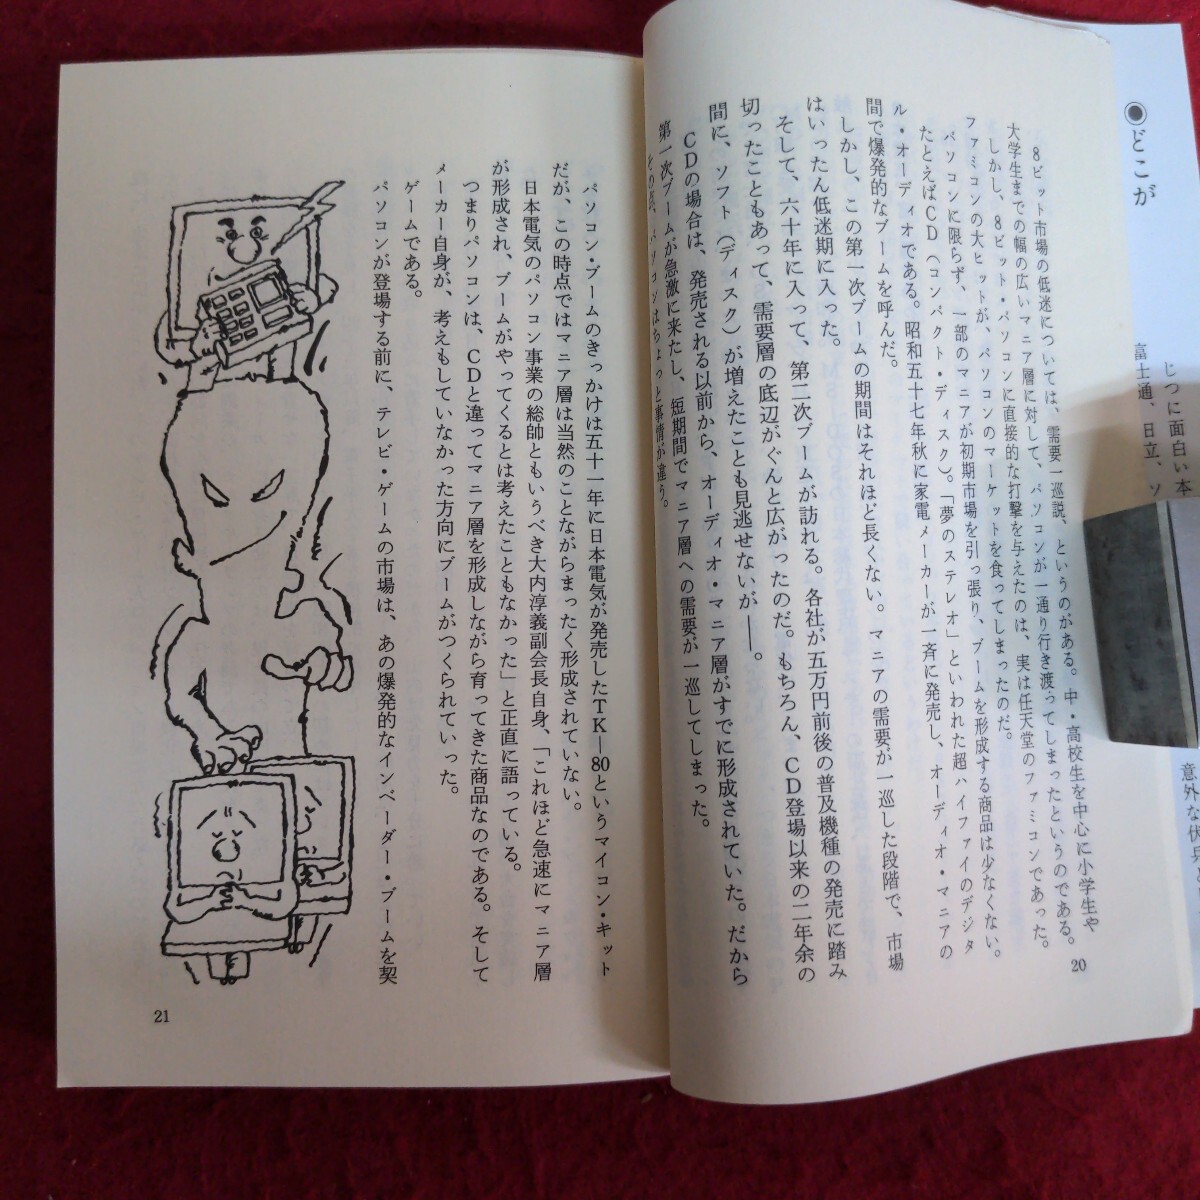 8ビット市場の低迷については、需要一巡説、というのがある。中・高校生を中心に小学生や
大学生までの幅の広いマニア層に対して、パソコンが一通り行き渡ってしまったというのである。
しかし、8ビット・パソコンに直接的な打撃を与えたのは、実は任天堂のファミコンであった。
ファミコンの大ヒットが、パソコンのマーケットを食ってしまったのだ。
パソコンに限らず、一部のマニアが初期市場を引っ張り、ブームを形成する商品は少なくない。
たとえばCD（コンパクト・ディスク）。「夢のステレオ」といわれた超ハイファイのデジタ
ル・オーディオである。昭和五十七年秋に家電メーカーが一斉に発売し、オーディオ・マニアの
間で爆発的なブームを呼んだ。
しかし、この第一次ブームの期間はそれほど長くない。マニアの需要が一巡した段階で、市場
はいったん低迷期に入った。
そして、六十年に入って、第二次ブームが訪れる。各社が五万円前後の普及機種の発売に踏み
切ったこともあって、需要層の底辺がぐんと広がったのだ。もちろん、CD登場以来の二年余の
間に、ソフト（ディスク）が増えたことも見逃せないが――。
CDの場合は、発売される以前から、オーディオ・マニア層がすでに形成されていた。だから
第一次ブームが急激に来たし、短期間でマニア層への需要が一巡してしまった。
その点、パソコンはちょっと事情が違う。
20
パソコン・ブームのきっかけは五十一年に日本電気が発売したTK―80というマイコン・キット
だが、この時点ではマニア層は当然のことながらまったく形成されていない。
日本電気のパソコン事業の総師ともいうべき大内淳義副会長自身、「これほど急速にマニア層
が形成され、ブームがやってくるとは考えたこともなかった」と正直に語っている。
つまりパソコンは、CDと違ってマニア層を形成しながら育ってきた商品なのである。そして
メーカー自身が、考えもしていなかった方向にブームがつくられていった。
ゲームである。
パソコンが登場する前に、テレビ・ゲームの市場は、あの爆発的なインベーダー・ブームを契
21
◉どこが
じつに面白い本
富士通、日立、ソ
意外な伏兵と